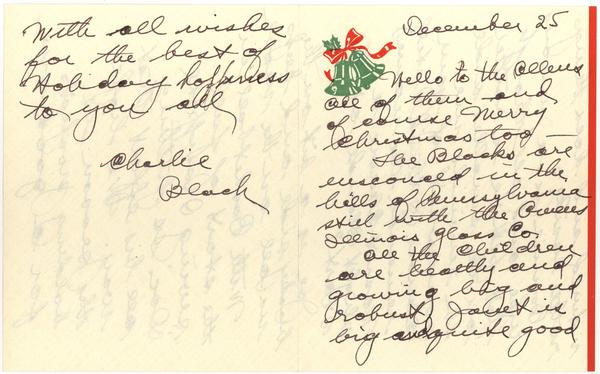 December 25
Hello to the Allens
all of them and
of course Merry
Christmas too —
The Blacks are
ensconced in the
hills of Pennsylvania
still with the Owens
Illinois Glass Co.
All the children
are healthy and
growing big and
robust, Janet is
big and quite good
With all wishes
for the best of
Holiday happiness
to you all
Charlie
Black